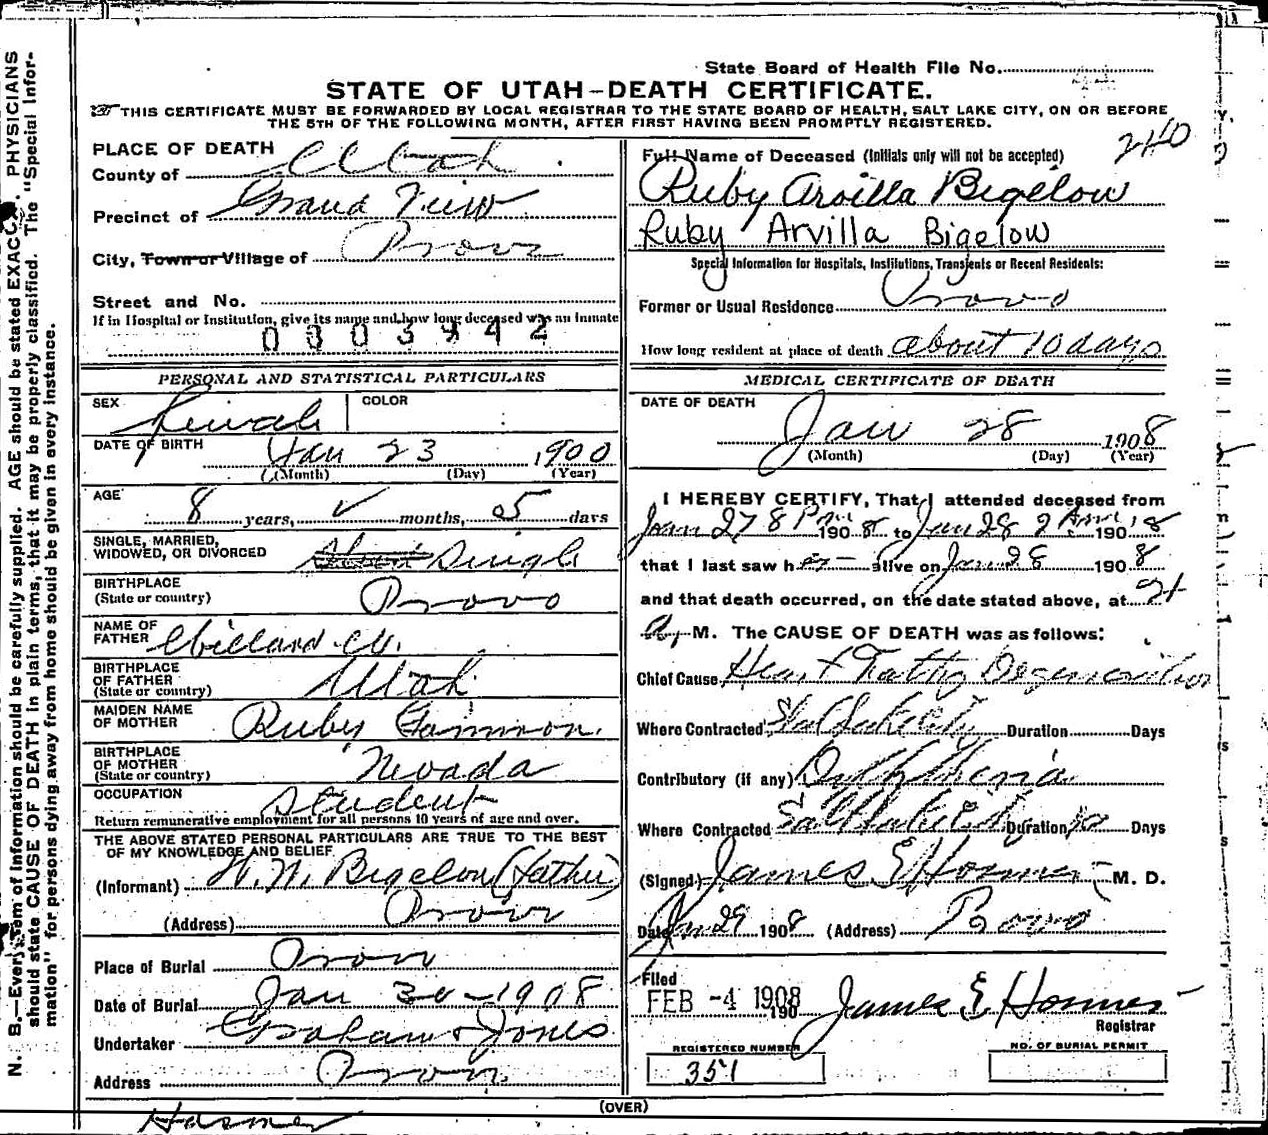 State Board of Health File No.
STATE OF UTAH—DEATH CERTIFICATE.
THIS CERTIFICATE MUST BE FORWARDED BY LOCAL REGISTRAR TO THE STATE BOARD OF HEALTH, SALT LAKE CITY, ON OR BEFORE
THE 5TH OF THE FOLLOWING MONTH, AFTER FIRST HAVING BEEN PROMPTLY REGISTERED.
240
PLACE OF DEATH
County of Utah
Precinct of Grand View
City, Town or Village of Provo
Street and No.
If in Hospital or Institution, give its name and how long deceased was an inmate
0303442
PERSONAL AND STATISTICAL PARTICULARS
SEX Female COLOR
DATE OF BIRTH Jan 23 1900
(Month) (Day) (Year)
AGE 8 years, months, 5 days
SINGLE, MARRIED,
WIDOWED, OR DIVORCED Single
BIRTHPLACE
(State or country) Provo
NAME OF
FATHER Willard W.
BIRTHPLACE
OF FATHER
(State or country) Utah
MAIDEN NAME
OF MOTHER Ruby Gammon.
BIRTHPLACE
OF MOTHER
(State or country) Nevada
OCCUPATION Student
Return remunerative employment for all persons 10 years of age and over.
THE ABOVE STATED PERSONAL PARTICULARS ARE TRUE TO THE BEST
OF MY KNOWLEDGE AND BELIEF
(Informant) W. W. Bigelow (father)
(Address) Provo
Place of Burial Provo
Date of Burial Jan 30-1908
Undertaker Graham & Jones
Address Provo
Hosmer
Full Name of Deceased (Initials only will not be accepted)
Ruby Arvilla Bigelow
Ruby Arvilla Bigelow
Special Information for Hospitals, Institutions, Transients or Recent Residents:
Former or Usual Residence Provo
How long resident at place of death about 10 days
MEDICAL CERTIFICATE OF DEATH
DATE OF DEATH
Jan 28 1908
(Month) (Day) (Year)
I HEREBY CERTIFY, That I attended deceased from
Jan 27 8 P.m. 1908 to Jan 28 2 A.m. 1908
that I last saw her alive on Jan 28 1908
and that death occurred, on the date stated above, at
A. M. The CAUSE OF DEATH was as follows:
Chief Cause Heart Fatty Degeneration
Where Contracted Salt Lake City Duration Days
Contributory (if any) Diphtheria
Where Contracted Salt Lake City Duration 10 Days
(Signed) James E Hosmer M. D.
Date Jan 29 1908 (Address) Provo
Filed
FEB -4 1908 190 James E Hosmer
Registrar
REGISTERED NUMBER
351
NO. OF BURIAL PERMIT
(OVER)
N. B.—Every item of information should be carefully supplied. AGE should be stated EXACTLY. PHYSICIANS
should state CAUSE OF DEATH in plain terms, that it may be properly classified. The "Special Infor-
mation" for persons dying away from home should be given in every instance.